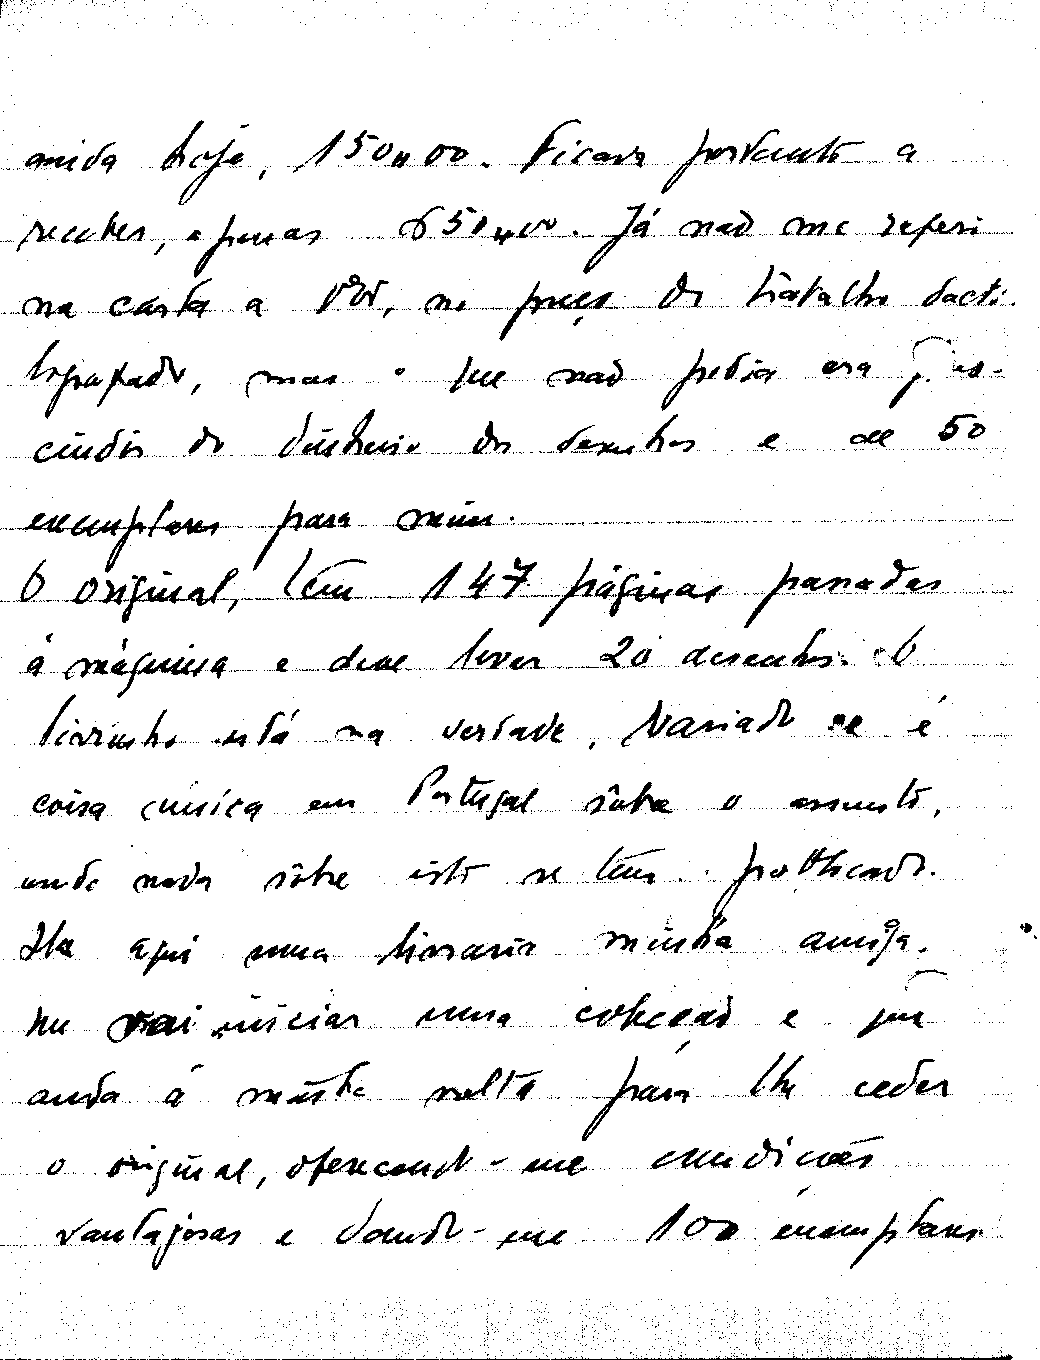 ainda hoje, 150$00. Ficava portanto a
receber, apenas 650$00. Já não me referi
na carta a Vª, no preço do trabalho dacti-
lografado, mas o que não podia era pres-
cindir do dinheiro dos desenhos e de 50
exemplares para mim.
O original, tem 147 páginas passadas
á máquina e deve levar 20 desenhos. O
livrinho está na verdade, variado e é
coisa única em Portugal sôbre o assunto,
onde nada sôbre isto se tem publicado.
Ha aqui uma livraria minha amiga.
que vai iniciar uma colecção e que
anda á minha volta para lhe ceder
o original, oferecendo-me condições
vantajosas e dando-me 100 exemplares